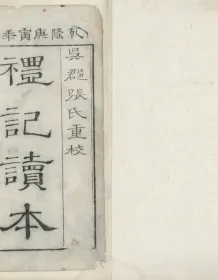 乾隆庚寅
吳郡張氏重校
禮記讀本